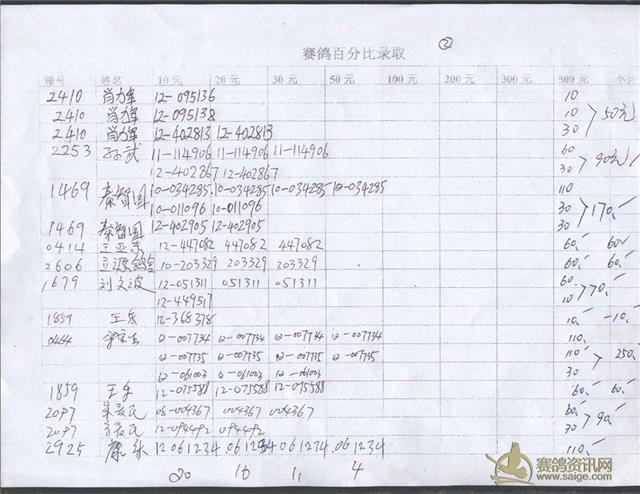 赛鸽百分比录取 ②
棚号 姓名 10元 20元 30元 50元 100元 200元 300元 500元 小计
2410 肖力军 12-095136 10
2410 肖力军 12-095138 10 > 50元
2410 肖力军 12-402813 12-402813 30
2253 孙武 11-114906 11-114906 11-114906 60
12-402867 12-402867 30 > 90元
1469 秦智国 10-034285 10-034285 10-034285 10-034285 110
10-011096 10-011096 30 > 170
1469 秦智国 12-402905 12-402905 30
0414 王亚东 12-447082 447082 447082 60 60
2606 10-203329 203329 203329 60 60
1679 刘文波 12-051311 051311 051311 60
12-449517 10 > 70
1859 王东 12-368378 10 10
12-007734 12-007734 12-007734 12-007734 110
12-007735 12-007735 12-007735 12-007735 110 > 250
12-061003 12-061003 12-061003 30
1859 王东 12-075588 12-075588 12-075588 60 60
2097 06-004367 004367 004367 60
2097 12-094492 094492 30 > 90
2925 康乐 12 061234 061234 061234 061234 110
20 16 11 4
赛鸽资讯网
www.saige.com